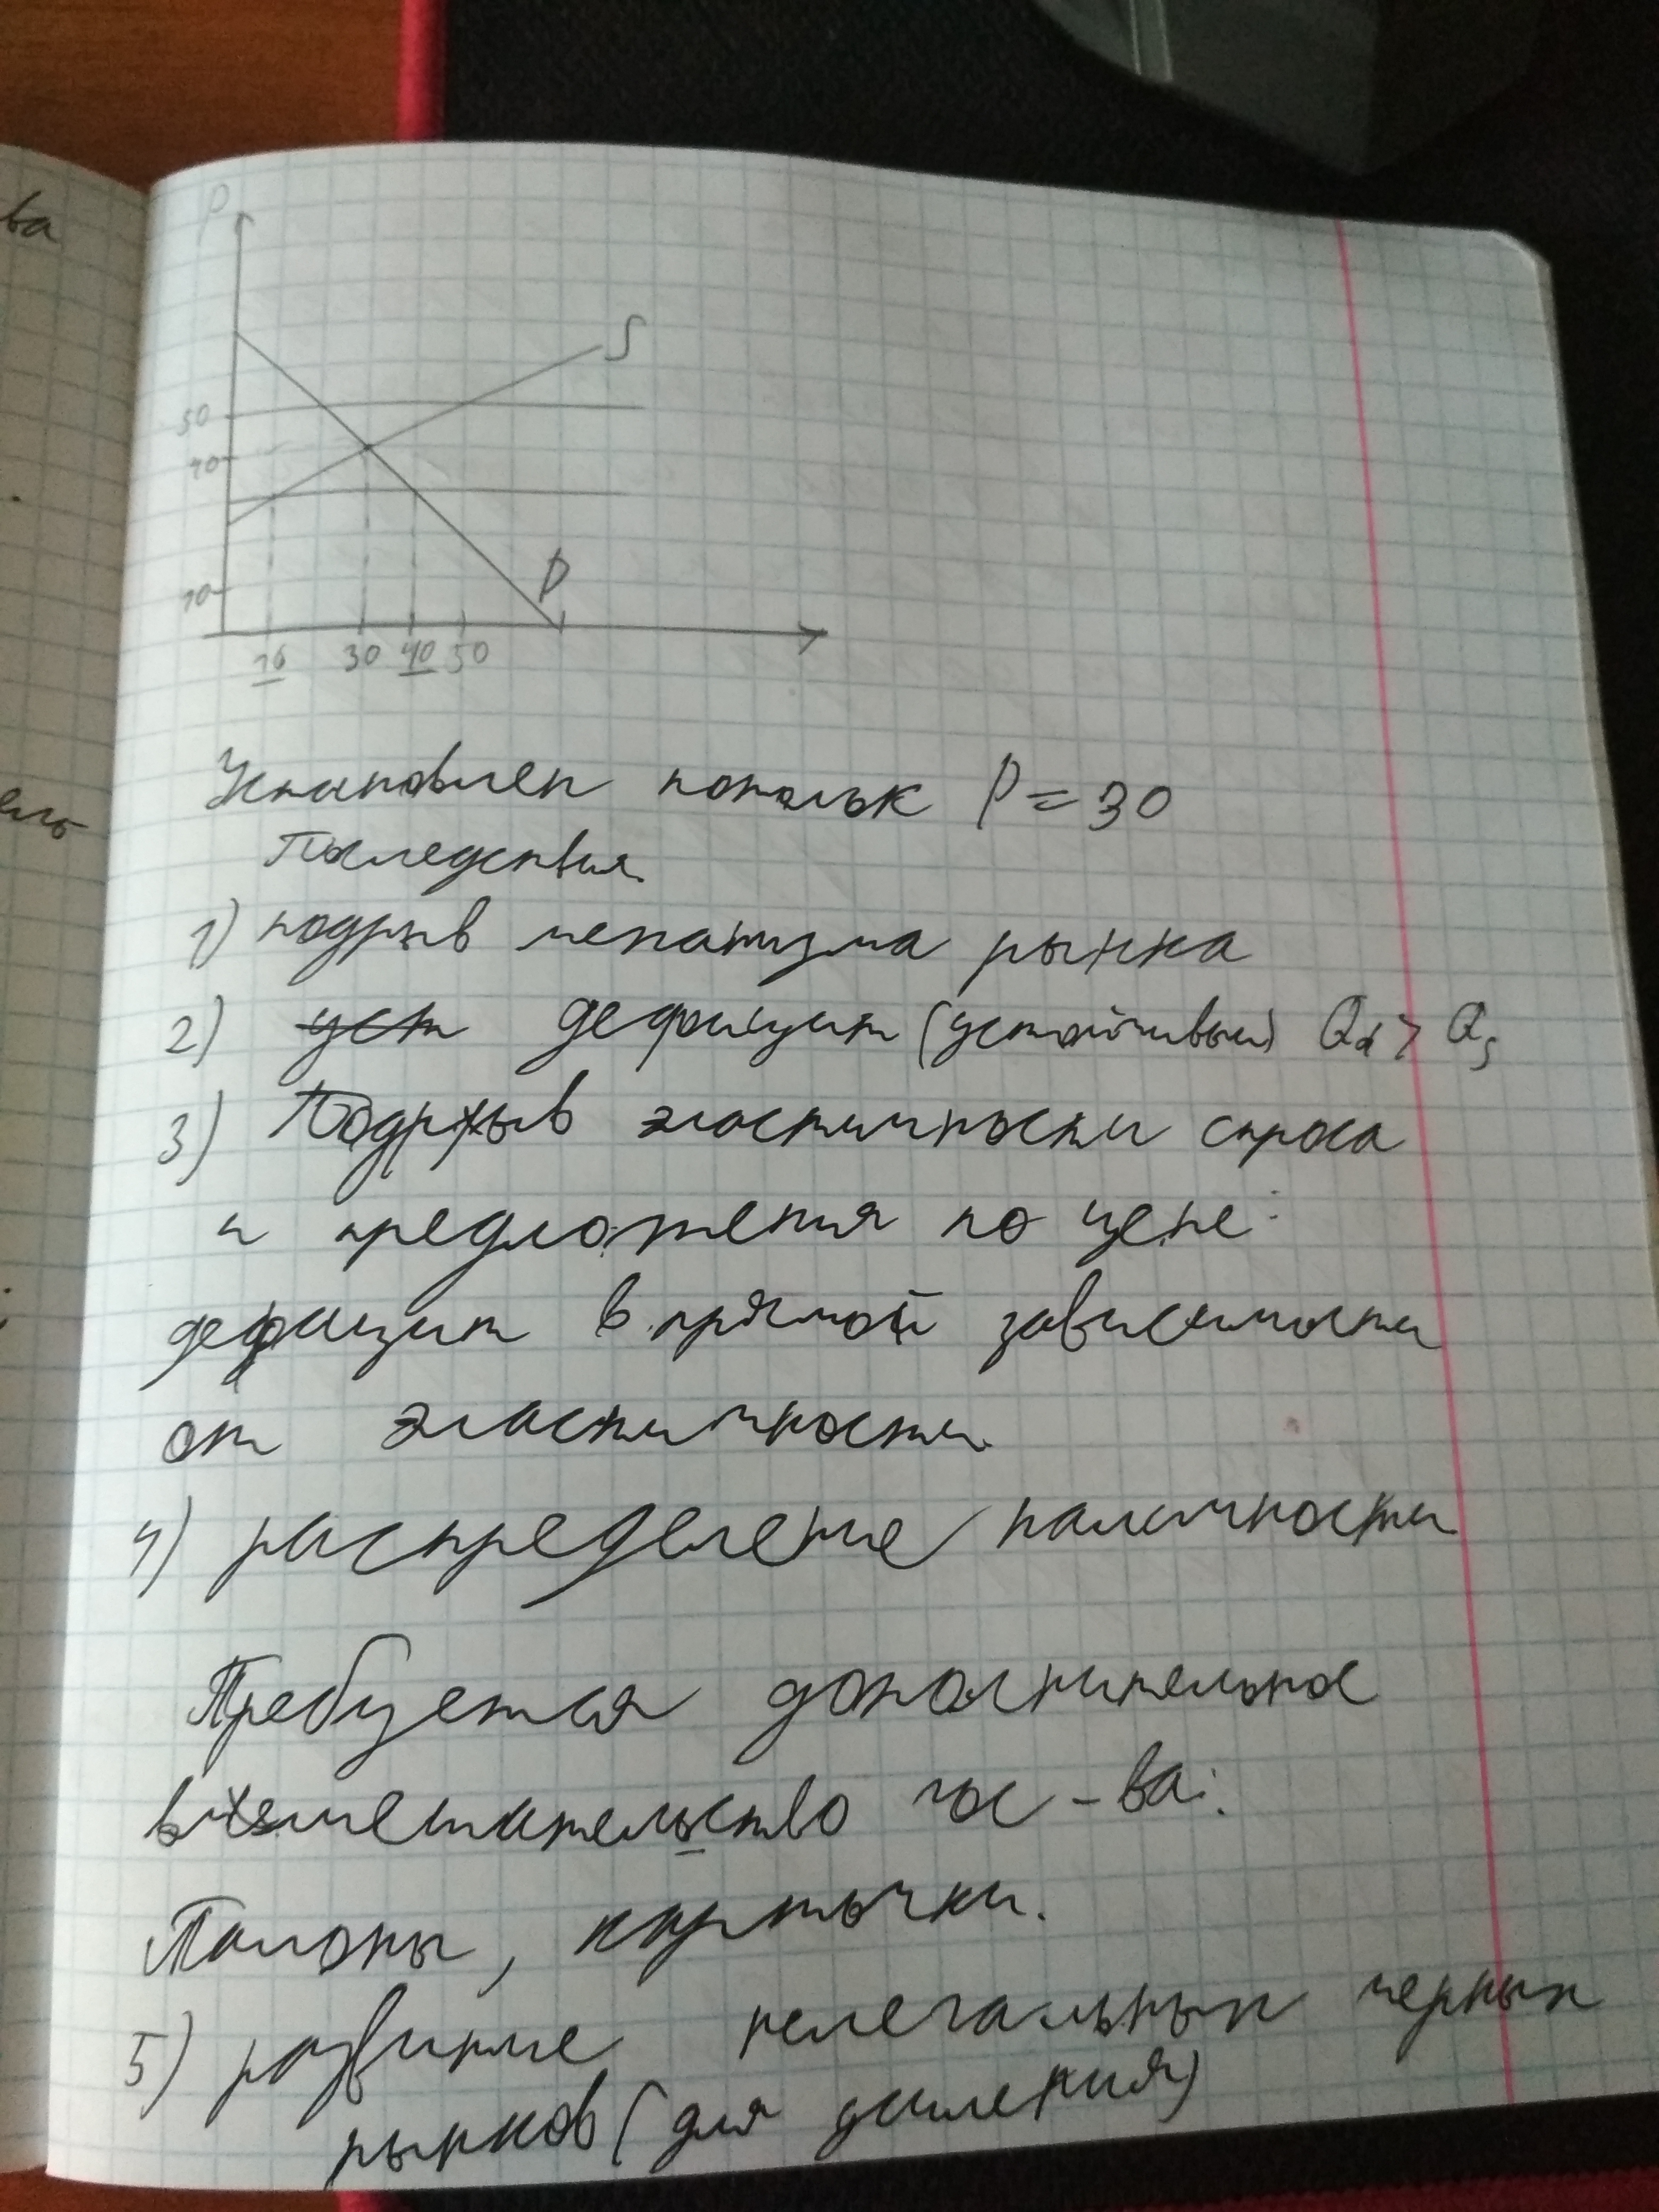 ва
P
S
50
40
D
10
10 30 40 50
Установлен потолок P = 30
Последствия
1) подрыв механизма рынка
2) уст дефицит (устойчивый) Qd > Qs
3) Подрыв эластичности спроса
и предложения по цене:
дефицит в прямой зависимости
от эластичности
4) распределение наличности
Требуется дополнительное
вмешательство гос-ва:
Талоны, карточки.
5) развитие нелегальных черных
рынков (для